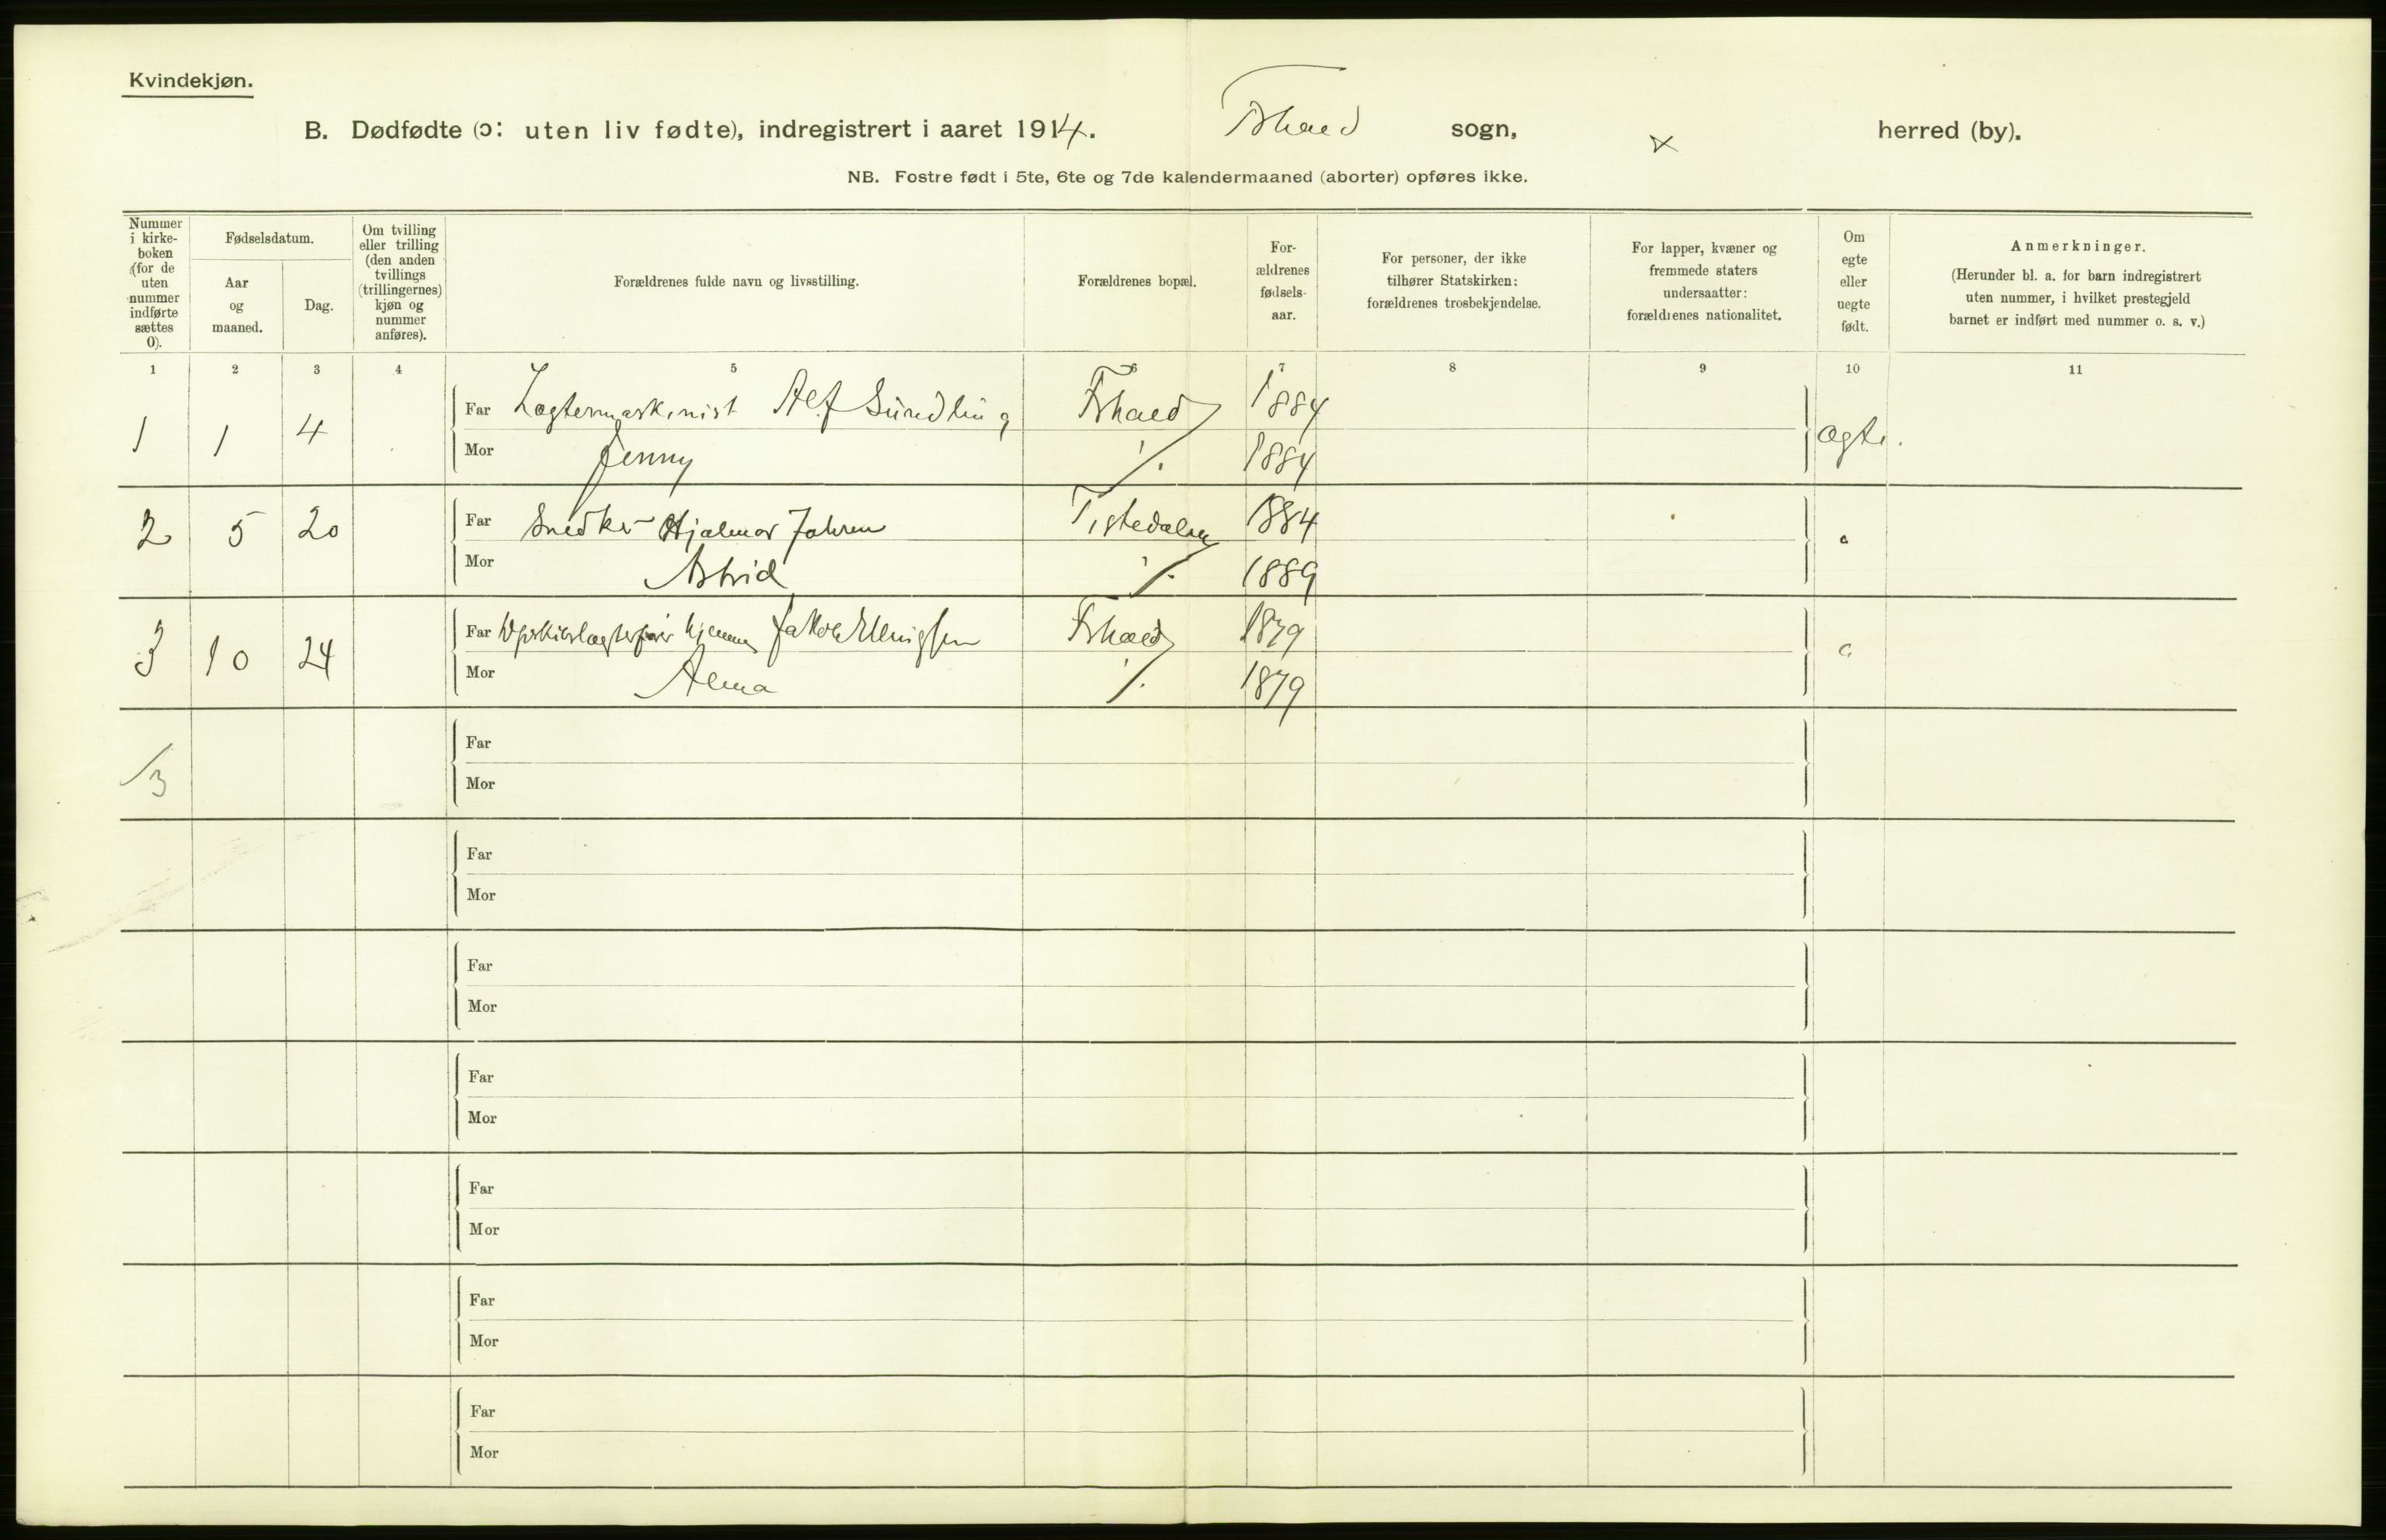 Kvindekjøn.
B. Dødfødte (ɔ: uten liv fødte), indregistrert i aaret 1914. Frhald sogn, x herred (by).
NB. Fostre født i 5te, 6te og 7de kalendermaaned (aborter) opføres ikke.
Nummer i kirkeboken (for de uten nummer indførte sættes 0).
Fødselsdatum.
Aar og maaned.
Dag.
Om tvilling eller trilling (den anden tvillings (trillingernes) kjøn og nummer anføres).
Forældrenes fulde navn og livsstilling.
Forældrenes bopæl.
Forældrenes fødselsaar.
For personer, der ikke tilhører Statskirken: forældrenes trosbekjendelse.
For lapper, kvæner og fremmede staters undersaatter: forældrenes nationalitet.
Om egte eller uegte født.
Anmerkninger.
(Herunder bl. a. for barn indregistrert uten nummer, i hvilket prestegjeld barnet er indført med nummer o. s. v.)
1 2 3 4 5 6 7 8 9 10 11
1 1 4 Far Lægtermaskinist Alf Sundling Frhald 1884 ægte.
Mor Jenny ⁒ 1884
2 5 20 Far Snedker Hjalmar Jahren Tistedalen 1884 "
Mor Astrid ⁒ 1889
3 10 24 Far Jakob Frhald 1879 "
Mor Alma ⁒ 1879
/3
Far
Mor
Far
Mor
Far
Mor
Far
Mor
Far
Mor
Far
Mor
Far
Mor